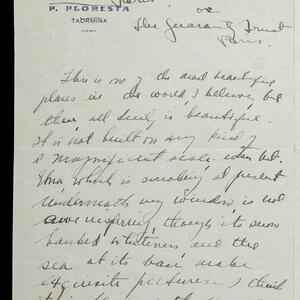 Paris. or
P. FLORESTA
TAORMINA
The Guaranty Trust
Paris.
This is one of the most beautiful
places in the world, I believe, but
then all Sicily is beautiful.
It is not built on any kind of
a magnificent scale, when but
Etna which is smoking at present
underneath my window is not
awe inspiring, though its snow
banked whiteness and the
sea at its base make
exquisite pictures — I think